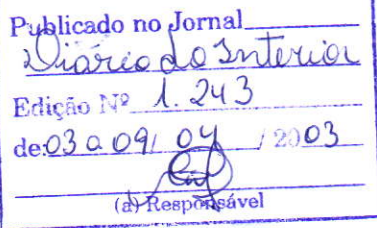 Publicado no Jornal
Diário do Interior
Edição Nº 1.243
de: 03 a 09/ 04 / 2003
(a) Responsável